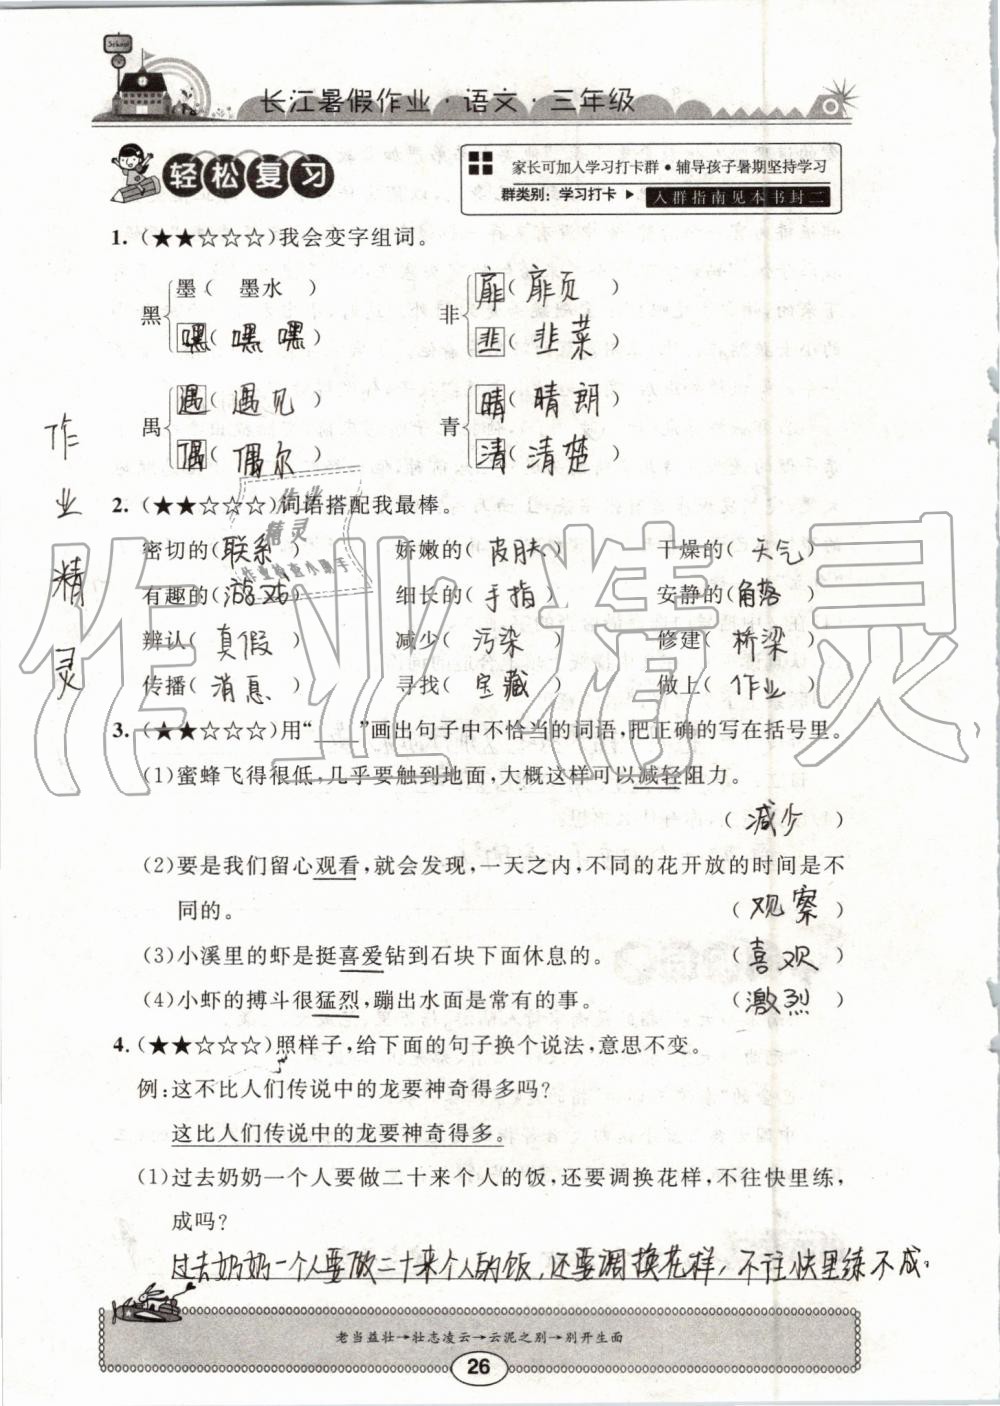 School
长江暑假作业·语文·三年级
轻松复习
家长可加入学习打卡群·辅导孩子暑期坚持学习
群类别：学习打卡 入群指南见本书封二
1.(★★☆☆☆)我会变字组词。
黑 墨( 墨水 ) 非 扉( 扉页 )
嘿( 嘿嘿 ) 韭( 韭菜 )
禺 遇( 遇见 ) 青 晴( 晴朗 )
偶( 偶尔 ) 清( 清楚 )
作业精灵
2.(★★☆☆☆)词语搭配我最棒。
密切的(联系) 娇嫩的(皮肤) 干燥的(天气)
有趣的(游戏) 细长的(手指) 安静的(角落)
辨认(真假) 减少(污染) 修建(桥梁)
传播(消息) 寻找(宝藏) 做上(作业)
3.(★★☆☆☆)用“____”画出句子中不恰当的词语,把正确的写在括号里。
(1)蜜蜂飞得很低,几乎要触到地面,大概这样可以减轻阻力。
(减少)
(2)要是我们留心观看,就会发现,一天之内,不同的花开放的时间是不
同的。 (观察)
(3)小溪里的虾是挺喜爱钻到石块下面休息的。 (喜欢)
(4)小虾的搏斗很猛烈,蹦出水面是常有的事。 (激烈)
4.(★★☆☆☆)照样子,给下面的句子换个说法,意思不变。
例:这不比人们传说中的龙要神奇得多吗?
这比人们传说中的龙要神奇得多。
(1)过去奶奶一个人要做二十来个人的饭,还要调换花样,不往快里练,
成吗?
过去奶奶一个人要做二十来个人的饭,还要调换花样,不往快里练不成。
老当益壮→壮志凌云→云泥之别→别开生面
26
作业精灵
作业
精灵
作业检查小助手